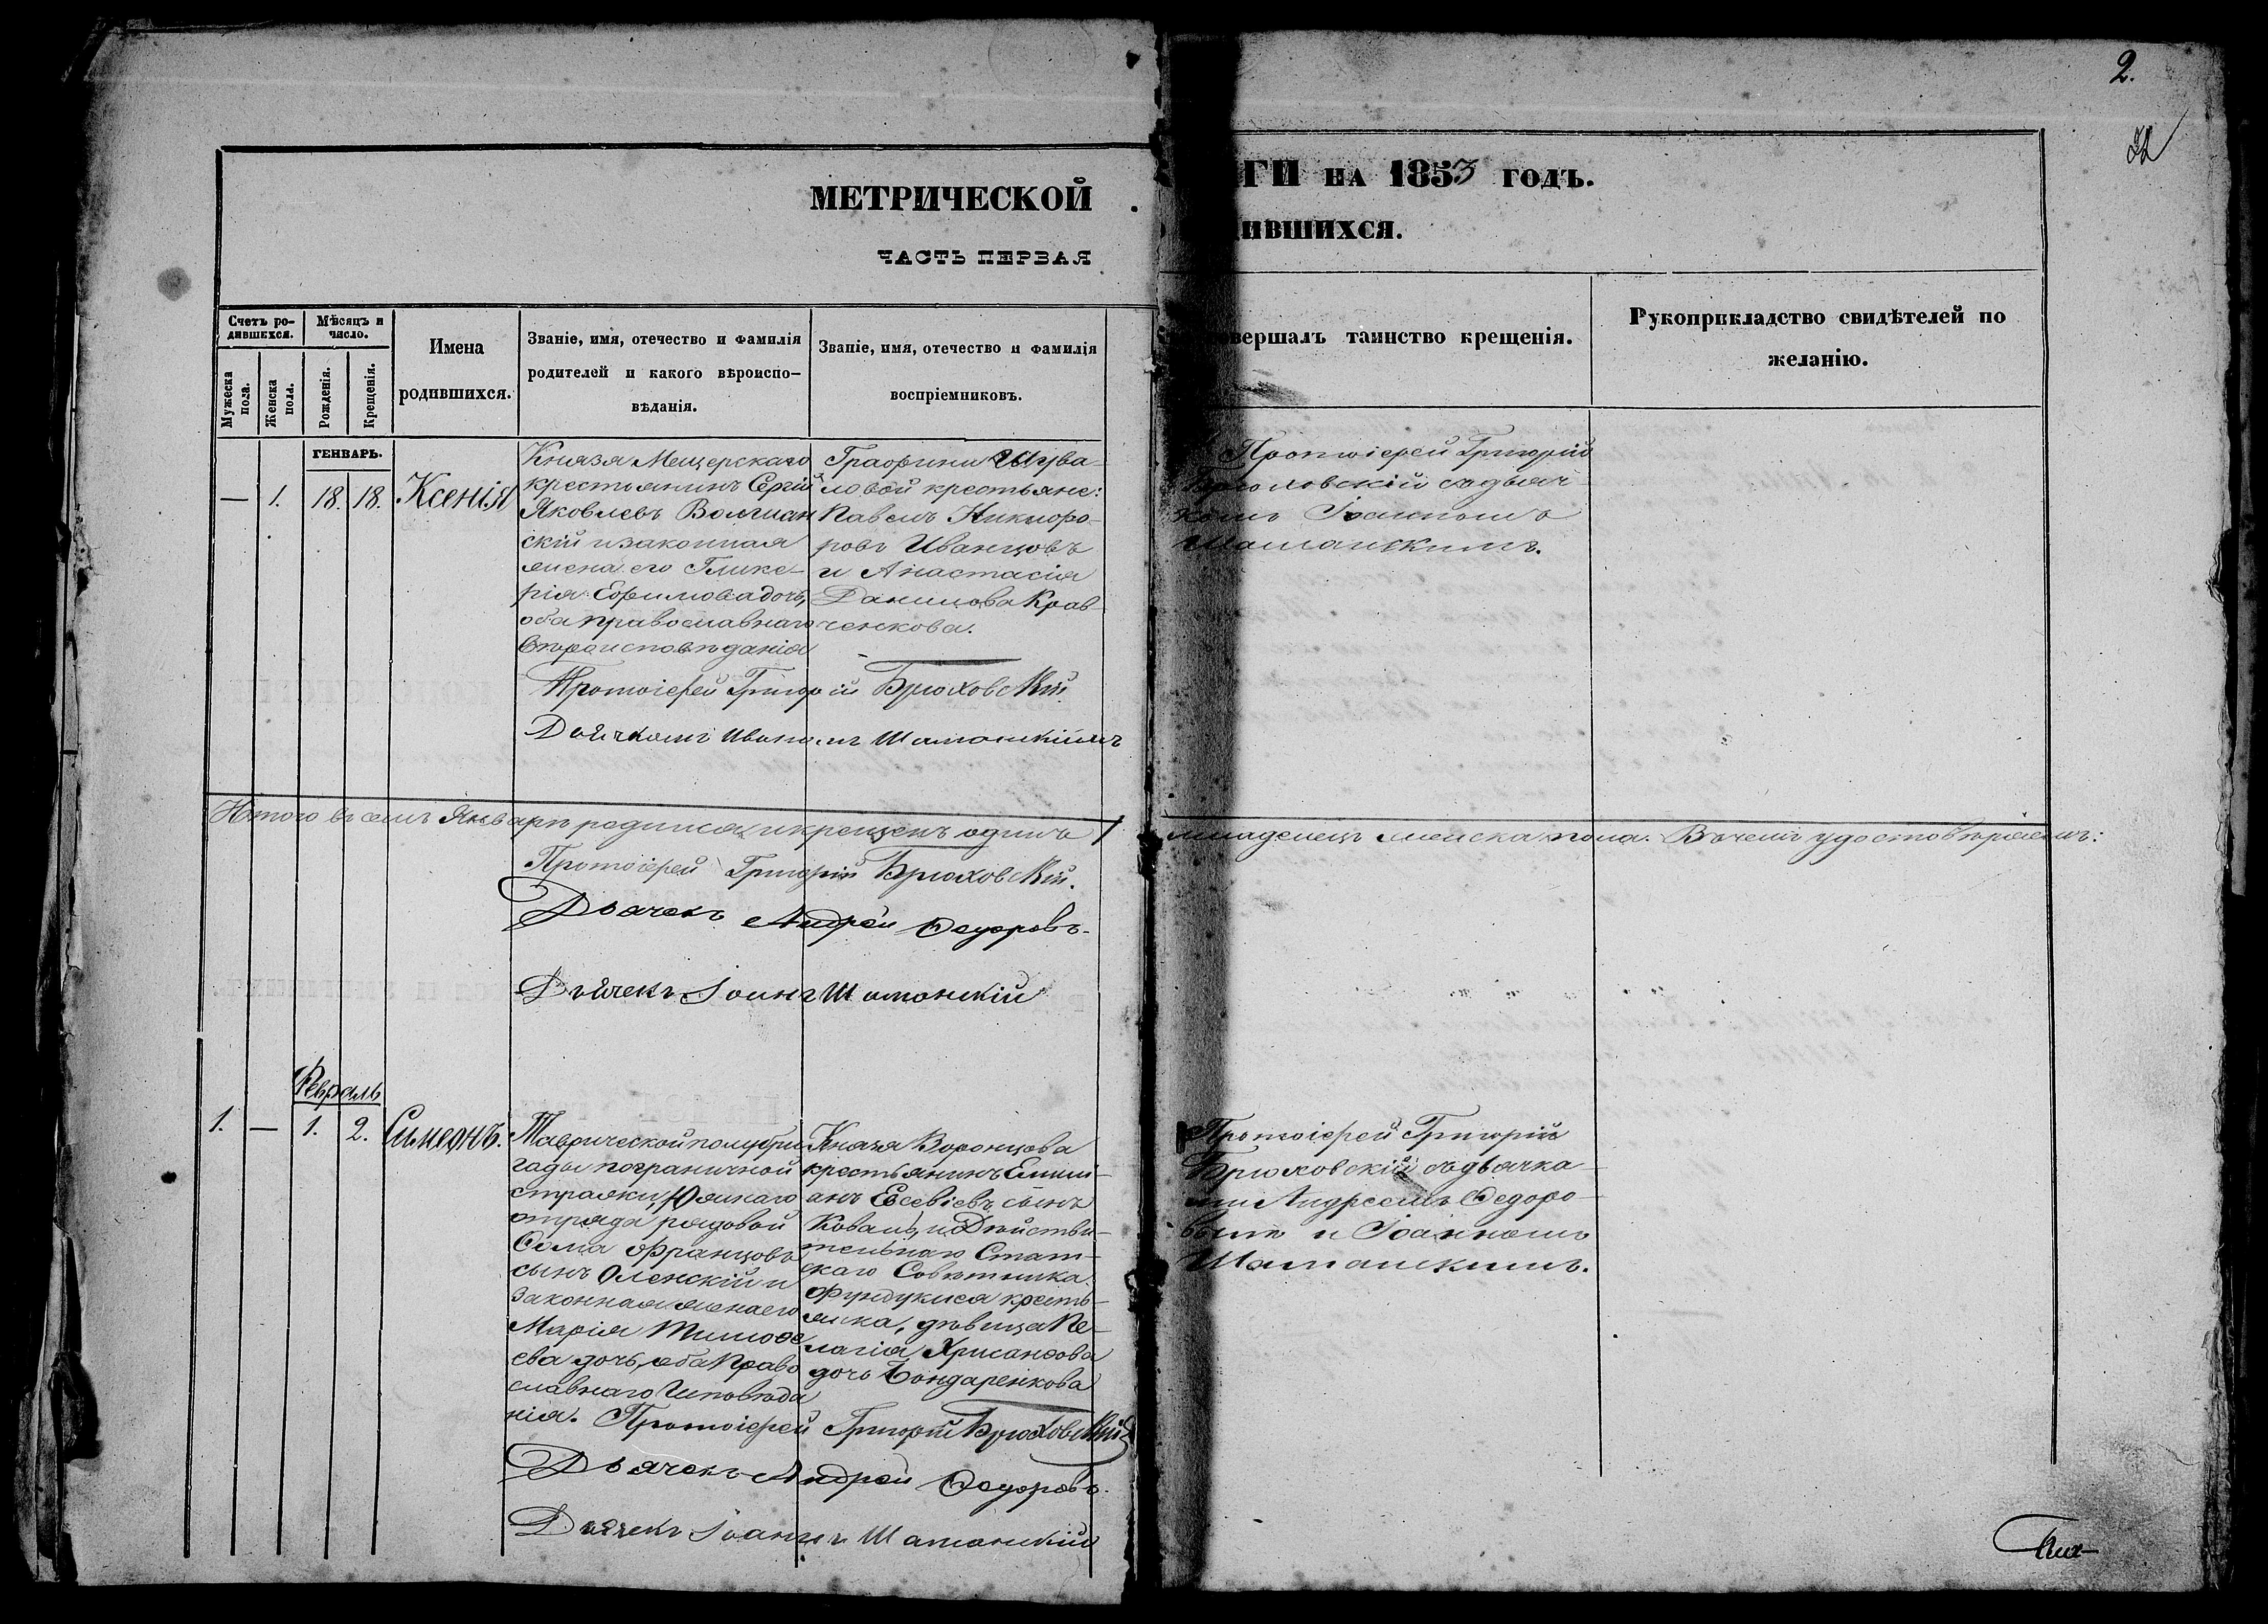 2.
МЕТРИЧЕСКОЙ
ГИ НА 1853 ГОДЪ.
ЧАСТЬ ПЕРВАЯ
ИВШИХСЯ.
Счетъ ро-
дившихся.
Мѣсяцъ и
число.
Мужеска
пола.
Женска
пола.
Рожденія.
Крещенія.
Имена
родившихся.
Званіе, имя, отечество и фамилія
родителей и какого вѣроиспо-
вѣданія.
Званіе, имя, отечество и фамилія
воспріемниковъ.
вершалъ таинство крещенія.
Рукоприкладство свидѣтелей по
желанію.
ГЕНВАРЬ.
— 1. 18. 18. Ксенія
Князя Мещерскаго
крестьянинъ Сергій
Яковлевъ Волчан
скій и законная
жена его Глике-
рія Ефимова дочь,
оба православнаго
вѣроисповѣданія
Графини Шува-
ловой крестьяне:
Павелъ Никифо-
ровъ Иванцовъ
и Анастасія
Данилова Крав-
ченкова.
Протоіерей Григорій
Брюховскій съ дьяч
комъ Іоанномъ
Шаманскимъ.
Протоіерей Григорій Брюховскій.
Дьячкомъ Иваномъ Шаманскимъ
Итого въ семъ Январѣ родился и крещенъ одинъ 1
младенецъ женска пола. Въ чемъ удостовѣряемъ:
Протоіерей Григорій Брюховскій.
Дьячекъ Андрей Ѳедоровъ.
Дьячекъ Іоаннъ Шаманскій
Февраль
1. — 1. 2. Симеонъ.
Таврической полубри
гады пограничной
стражи, Южнаго
отряда рядовой
Ѳома Францовъ
сынъ Оленскій и
законная жена его
Марія Тимоѳе
ева дочь, оба Право
славнаго Исповѣда
нія.
Князя Воронцова
крестьянинъ Емилі-
анъ Евсевіевъ сынъ
Коваль, и Дѣйстви-
тельнаго Стат-
скаго Совѣтника
Фундуклея кресть-
янка, дѣвица Пе-
лагія Хрисанѳова
дочь Бондаренкова
Протоіерей Григорій
Брюховскій съ дьячка-
ми Андреемъ Ѳедоро-
вымъ и Іоанномъ
Шаманскимъ.
Протоіерей Григорій Брюховскій
Дьячекъ Андрей Ѳедоровъ.
Дьячекъ Іоаннъ Шаманскій